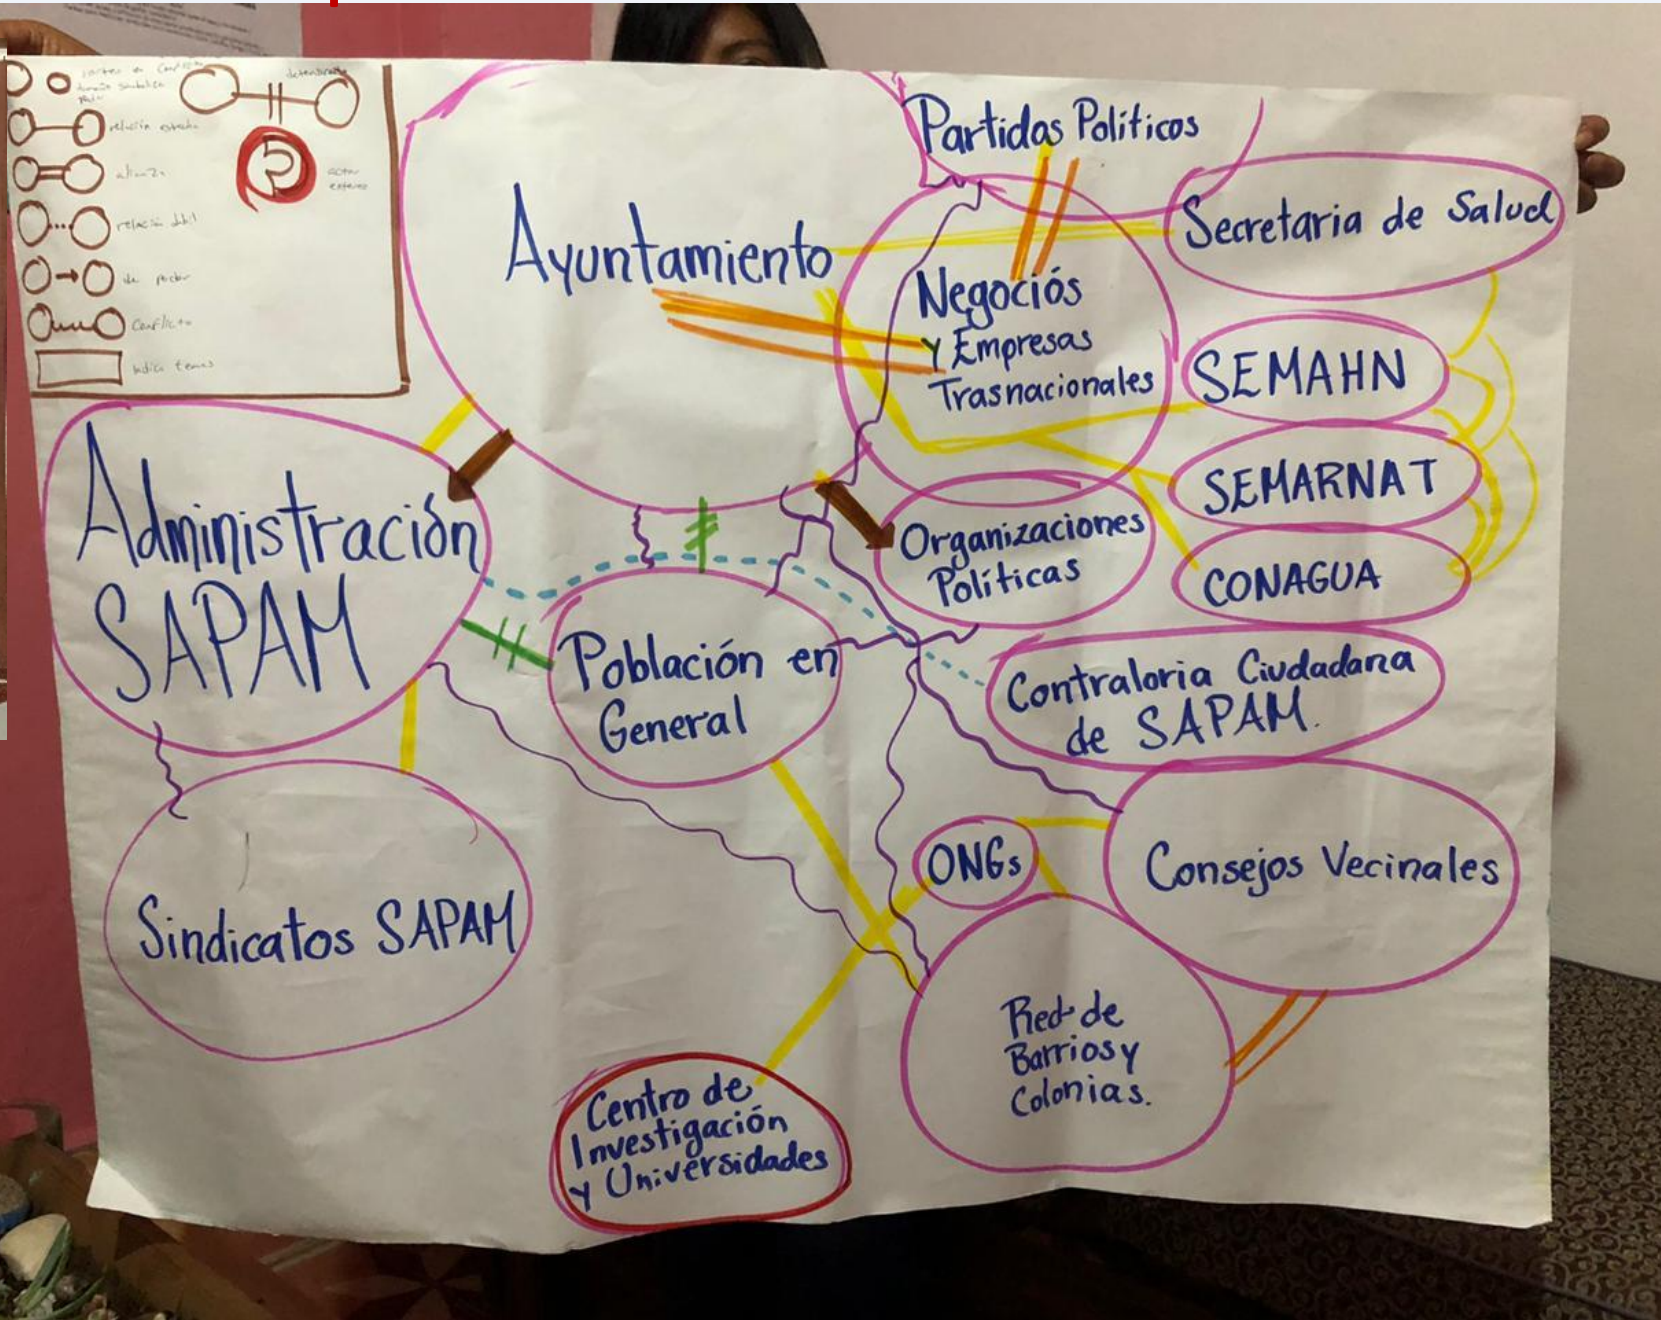 relación estrecha
alianza
relación débil
de poder
Conflicto
Indica temas
actor
externo
Partidos Políticos
Ayuntamiento
Secretaria de Salud
Negociós
y Empresas
Trasnacionales
SEMAHN
SEMARNAT
CONAGUA
Administración
SAPAM
Organizaciones
Políticas
Población en
General
Contraloria Ciudadana
de SAPAM.
ONGs
Consejos Vecinales
Sindicatos SAPAM
Red de
Barrios y
Colonias.
Centro de
Investigación
y Universidades